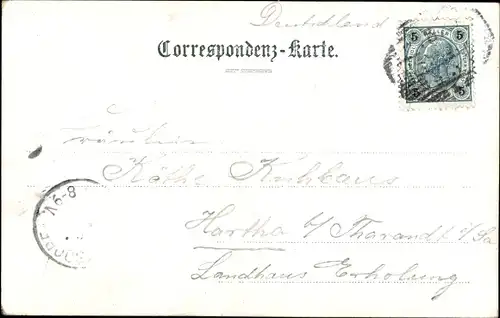 Deutschland
Correspondenz-Karte.
5 5
5 5
Fräulein
Käthe Kuhhaus
Hartha b/ Tharandt i/Sa
Landhaus Erholung
8-9V